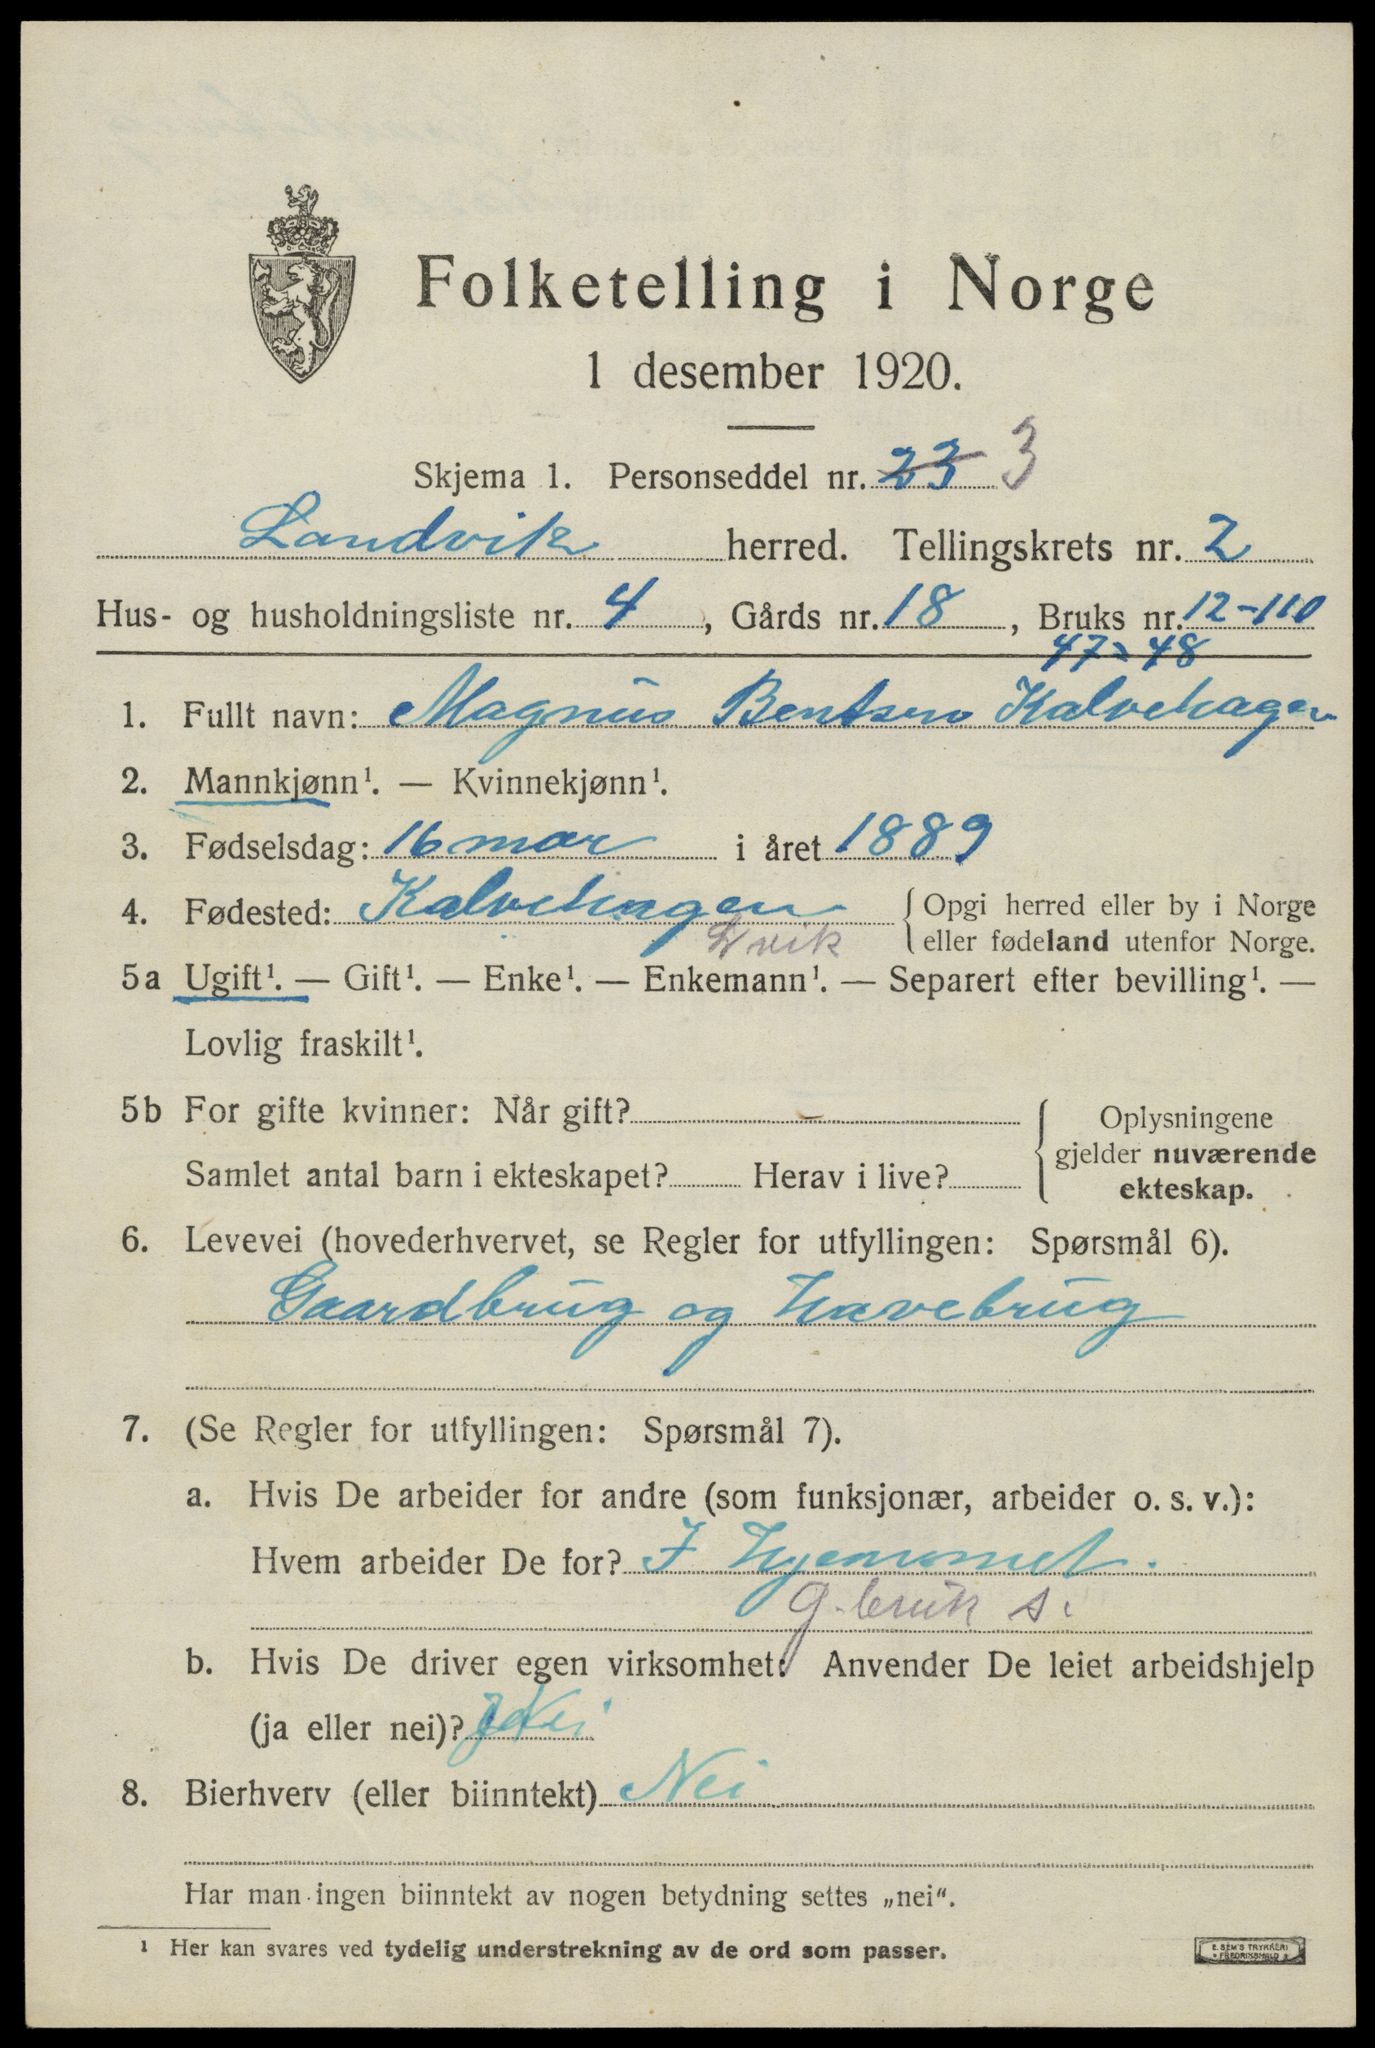 Folketelling i Norge
1 desember 1920.
Skjema 1. Personseddel nr. 23 3
Landvik herred. Tellingskrets nr. 2
Hus- og husholdningsliste nr. 4, Gårds nr. 18, Bruks nr. 12-110
47 48
1. Fullt navn: Magnus Bentsen Kalvehagen
2. Mannkjønn¹. — Kvinnekjønn¹.
3. Fødselsdag: 16 mar i året 1889
4. Fødested: Kalvehagen { Opgi herred eller by i Norge
Lvik eller fødeland utenfor Norge.
5a Ugift¹. — Gift¹. — Enke¹. — Enkemann¹. — Separert efter bevilling¹. —
Lovlig fraskilt¹.
5b For gifte kvinner: Når gift? – { Oplysningene
gjelder nuværende
Samlet antal barn i ekteskapet? Herav i live?
ekteskap.
6. Levevei (hovederhvervet, se Regler for utfyllingen: Spørsmål 6).
Gaardbrug og Havebrug
7. (Se Regler for utfyllingen: Spørsmål 7).
a. Hvis De arbeider for andre (som funksjonær, arbeider o. s. v.):
Hvem arbeider De for? I Hjemmet.
G. bruk s.
b. Hvis De driver egen virksomhet: Anvender De leiet arbeidshjelp
(ja eller nei)? Nei
8. Bierhverv (eller biinntekt) Nei
Har man ingen biinntekt av nogen betydning settes „nei“.
¹ Her kan svares ved tydelig understrekning av de ord som passer.
E. SEM'S TRYKKERI
FREDRIKSHALD